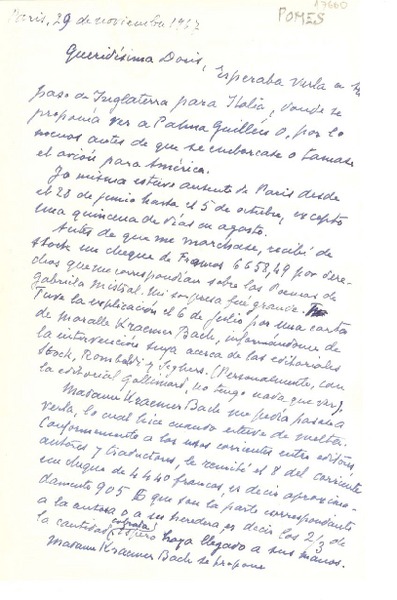 17660
POMES
Paris, 29 de noviembre 1967
Queridísima Doris,
Esperaba verla en su
paso de Inglaterra para Italia, donde se
proponía ver a Palma Guillén o, por lo
menos antes de que se embarcase o tomase
el avión para América.
Yo misma estuve ausente de Paris desde
el 28 de junio hasta el 5 de octubre, excepto
una quincena de días en agosto.
Antes de que me marchase, recibí de
Stock un cheque de Francos 6658,49 por dere-
chos que me correspondían sobre los Poemas de
Gabriela Mistral. Mi sorpresa fué grande.
Tuve la explicación el 6 de julio por una carta
de Maralle Kraemer Bach, informándome de
la intervención suya acerca de las editoriales
Stock, Rombaldi y Seghers. (Personalmente, con
la editorial Gallimard, no tengo nada que ver).
Madame Kraemer Bach me pedía pasase a
verla, lo cual hice cuando estuve de vuelta.
Conformemente a los usos corrientes entre editores,
autores y traductores, le remití el 8 del corriente
un cheque de 4440 francos, es decir aproxima-
damente 905 $ que son la parte correspondiente
a la autora o a su heredera, es decir los 2/3 de
la cantidad cobrada. Espero haya llegado a sus manos.
Madame Kraemer Bach se propone